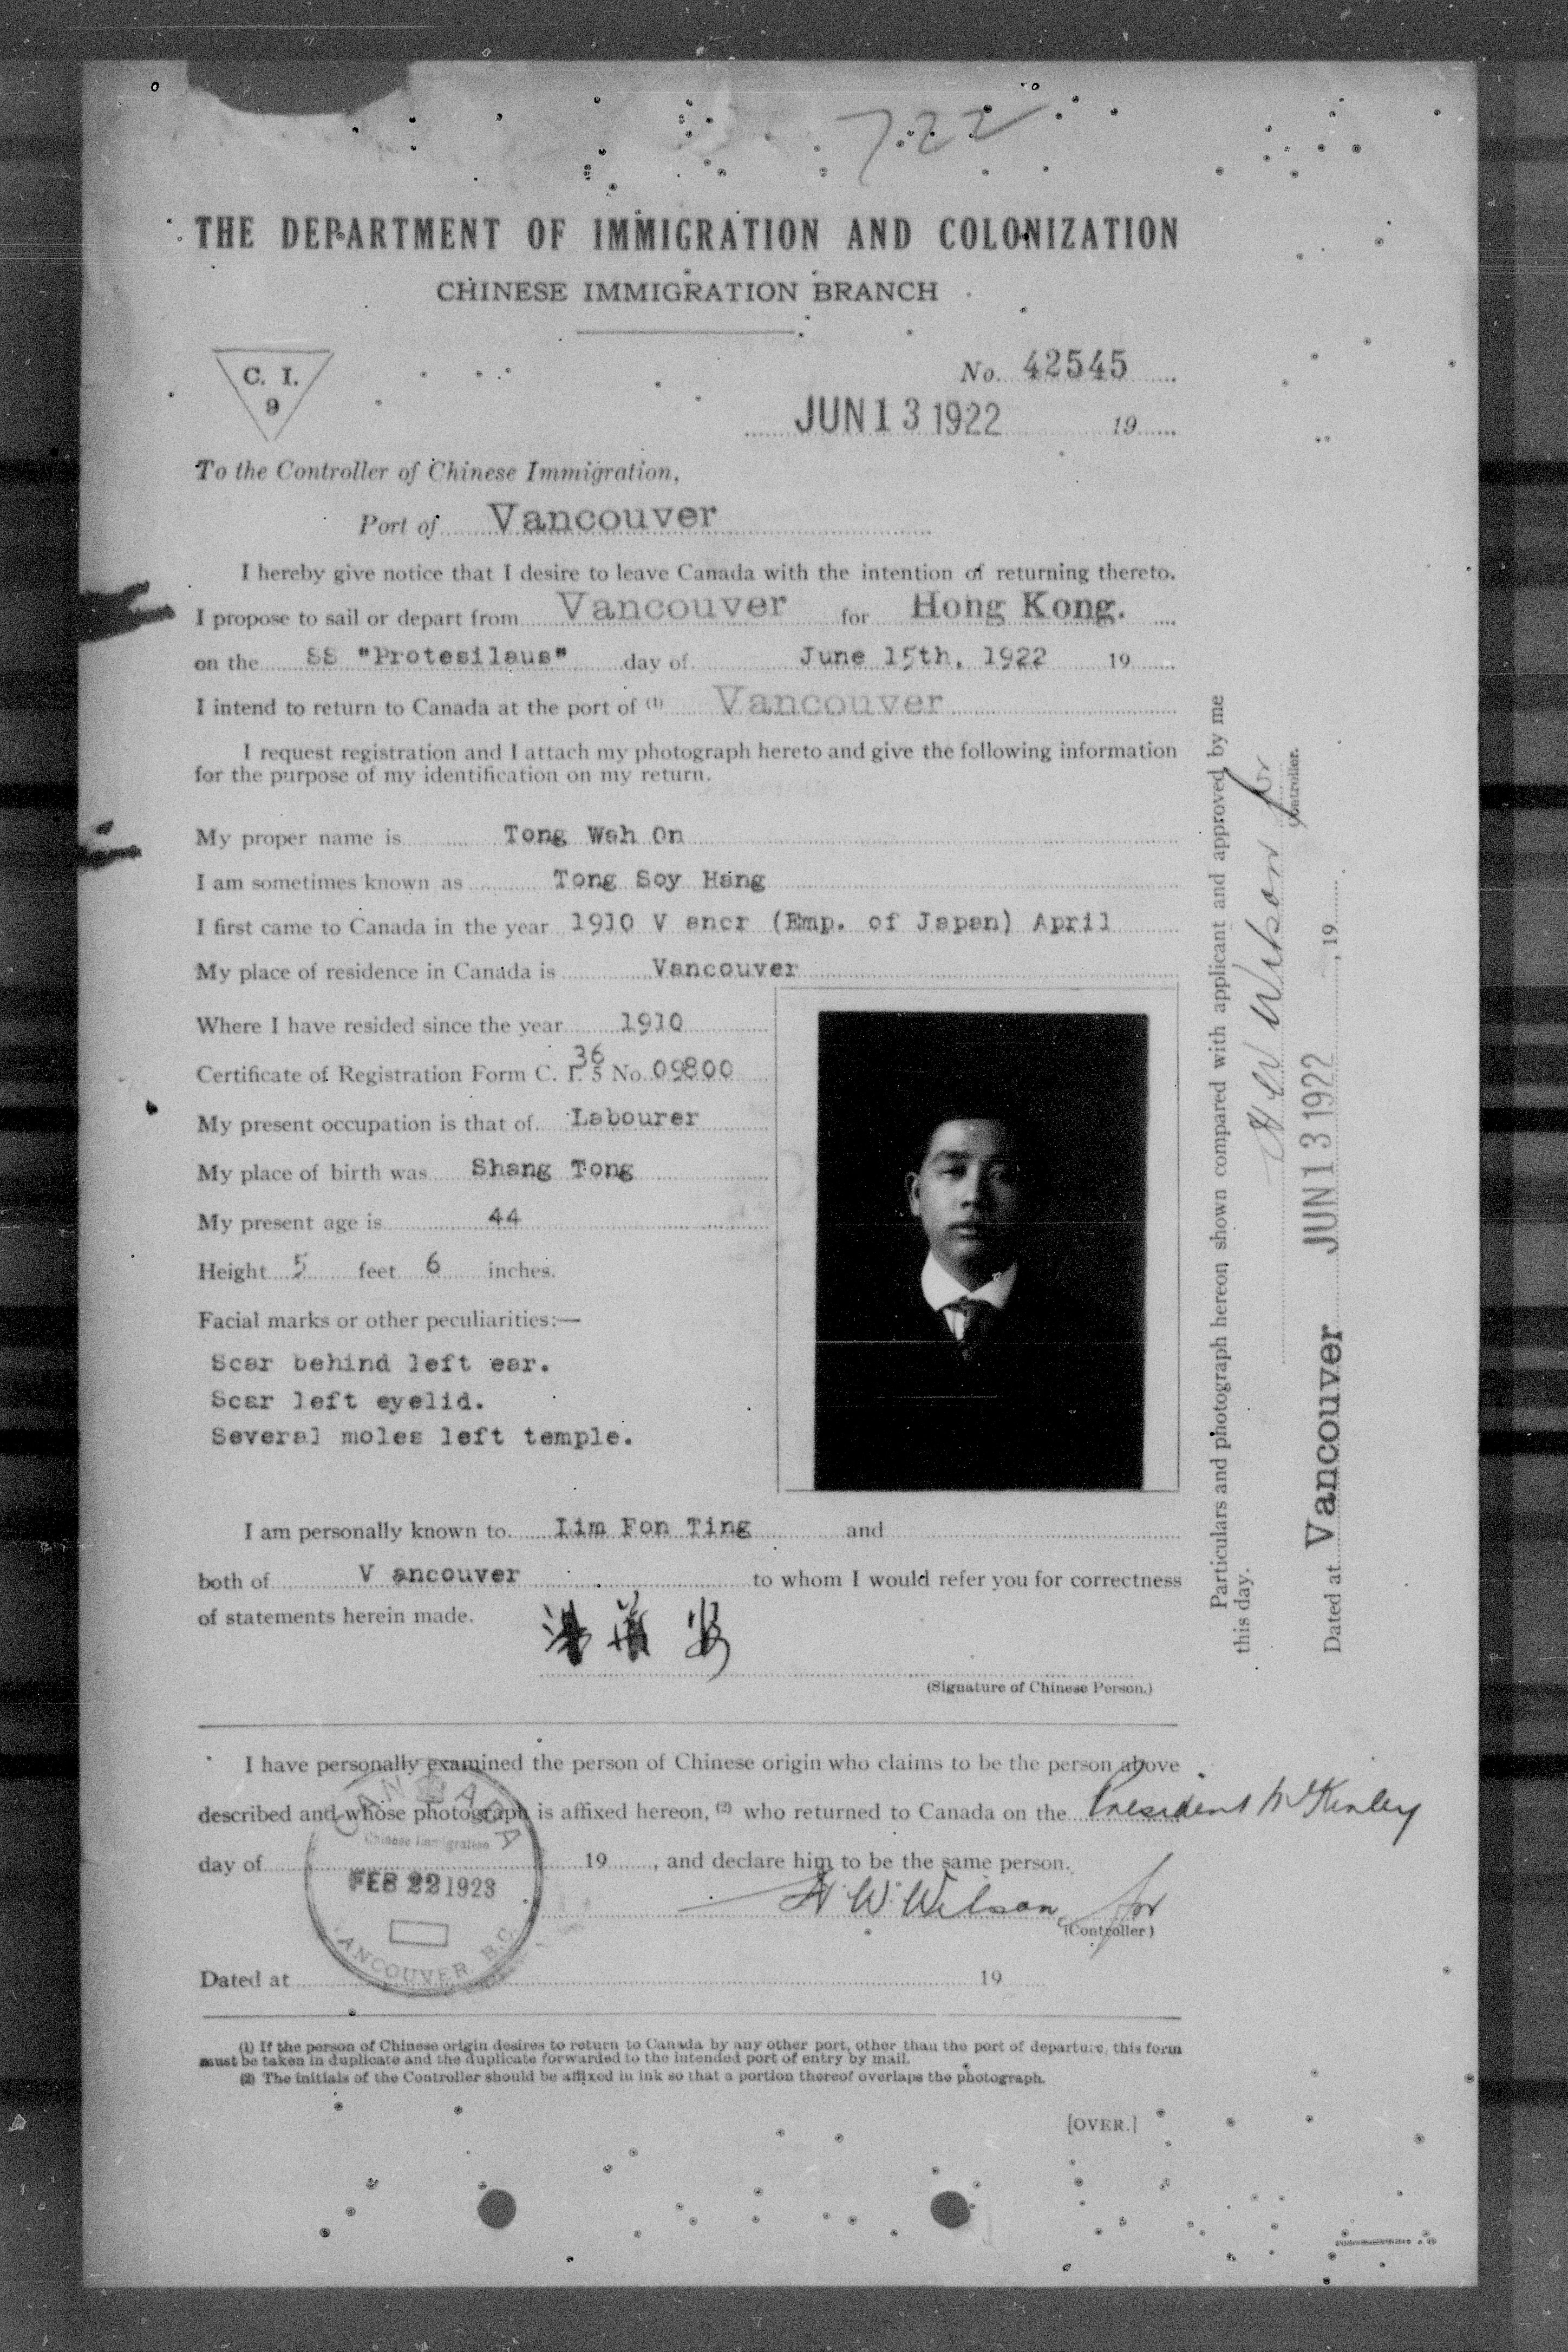 722
THE DEPARTMENT OF IMMIGRATION AND COLONIZATION
CHINESE IMMIGRATION BRANCH
C. I.
9
No. 42545
JUN 13 1922 19
To the Controller of Chinese Immigration,
Port of Vancouver
I hereby give notice that I desire to leave Canada with the intention of returning thereto.
I propose to sail or depart from Vancouver for Hong Kong.
on the SS "Protesilaus" day of June 15th, 1922 19
I intend to return to Canada at the port of (1) Vancouver
I request registration and I attach my photograph hereto and give the following information
for the purpose of my identification on my return.
My proper name is Tong Wah On
I am sometimes known as Tong Soy Hang
I first came to Canada in the year 1910 V ancr (Emp. of Japan) April
My place of residence in Canada is Vancouver
Where I have resided since the year 1910
36
Certificate of Registration Form C. I. 5 No. 09800
My present occupation is that of Labourer
My place of birth was Shang Tong
My present age is 44
Height 5 feet 6 inches.
Facial marks or other peculiarities:—
Scar behind left ear.
Scar left eyelid.
Several moles left temple.
I am personally known to Lim Fon Ting and
both of V ancouver to whom I would refer you for correctness
of statements herein made.
(Signature of Chinese Person.)
I have personally examined the person of Chinese origin who claims to be the person above
described and whose photograph is affixed hereon, (2) who returned to Canada on the President McKinley
day of 19 , and declare him to be the same person.
A W Wilson for
(Controller)
Dated at 19
CANADA
Chinese Immigration
FEB 22 1923
VANCOUVER B.C.
(1) If the person of Chinese origin desires to return to Canada by any other port, other than the port of departure, this form
must be taken in duplicate and the duplicate forwarded to the intended port of entry by mail.
(2) The initials of the Controller should be affixed in ink so that a portion thereof overlaps the photograph.
[OVER.]
Particulars and photograph hereon shown compared with applicant and approved by me
this day.
A W Wilson for
Controller.
Dated at Vancouver JUN 13 1922 , 19